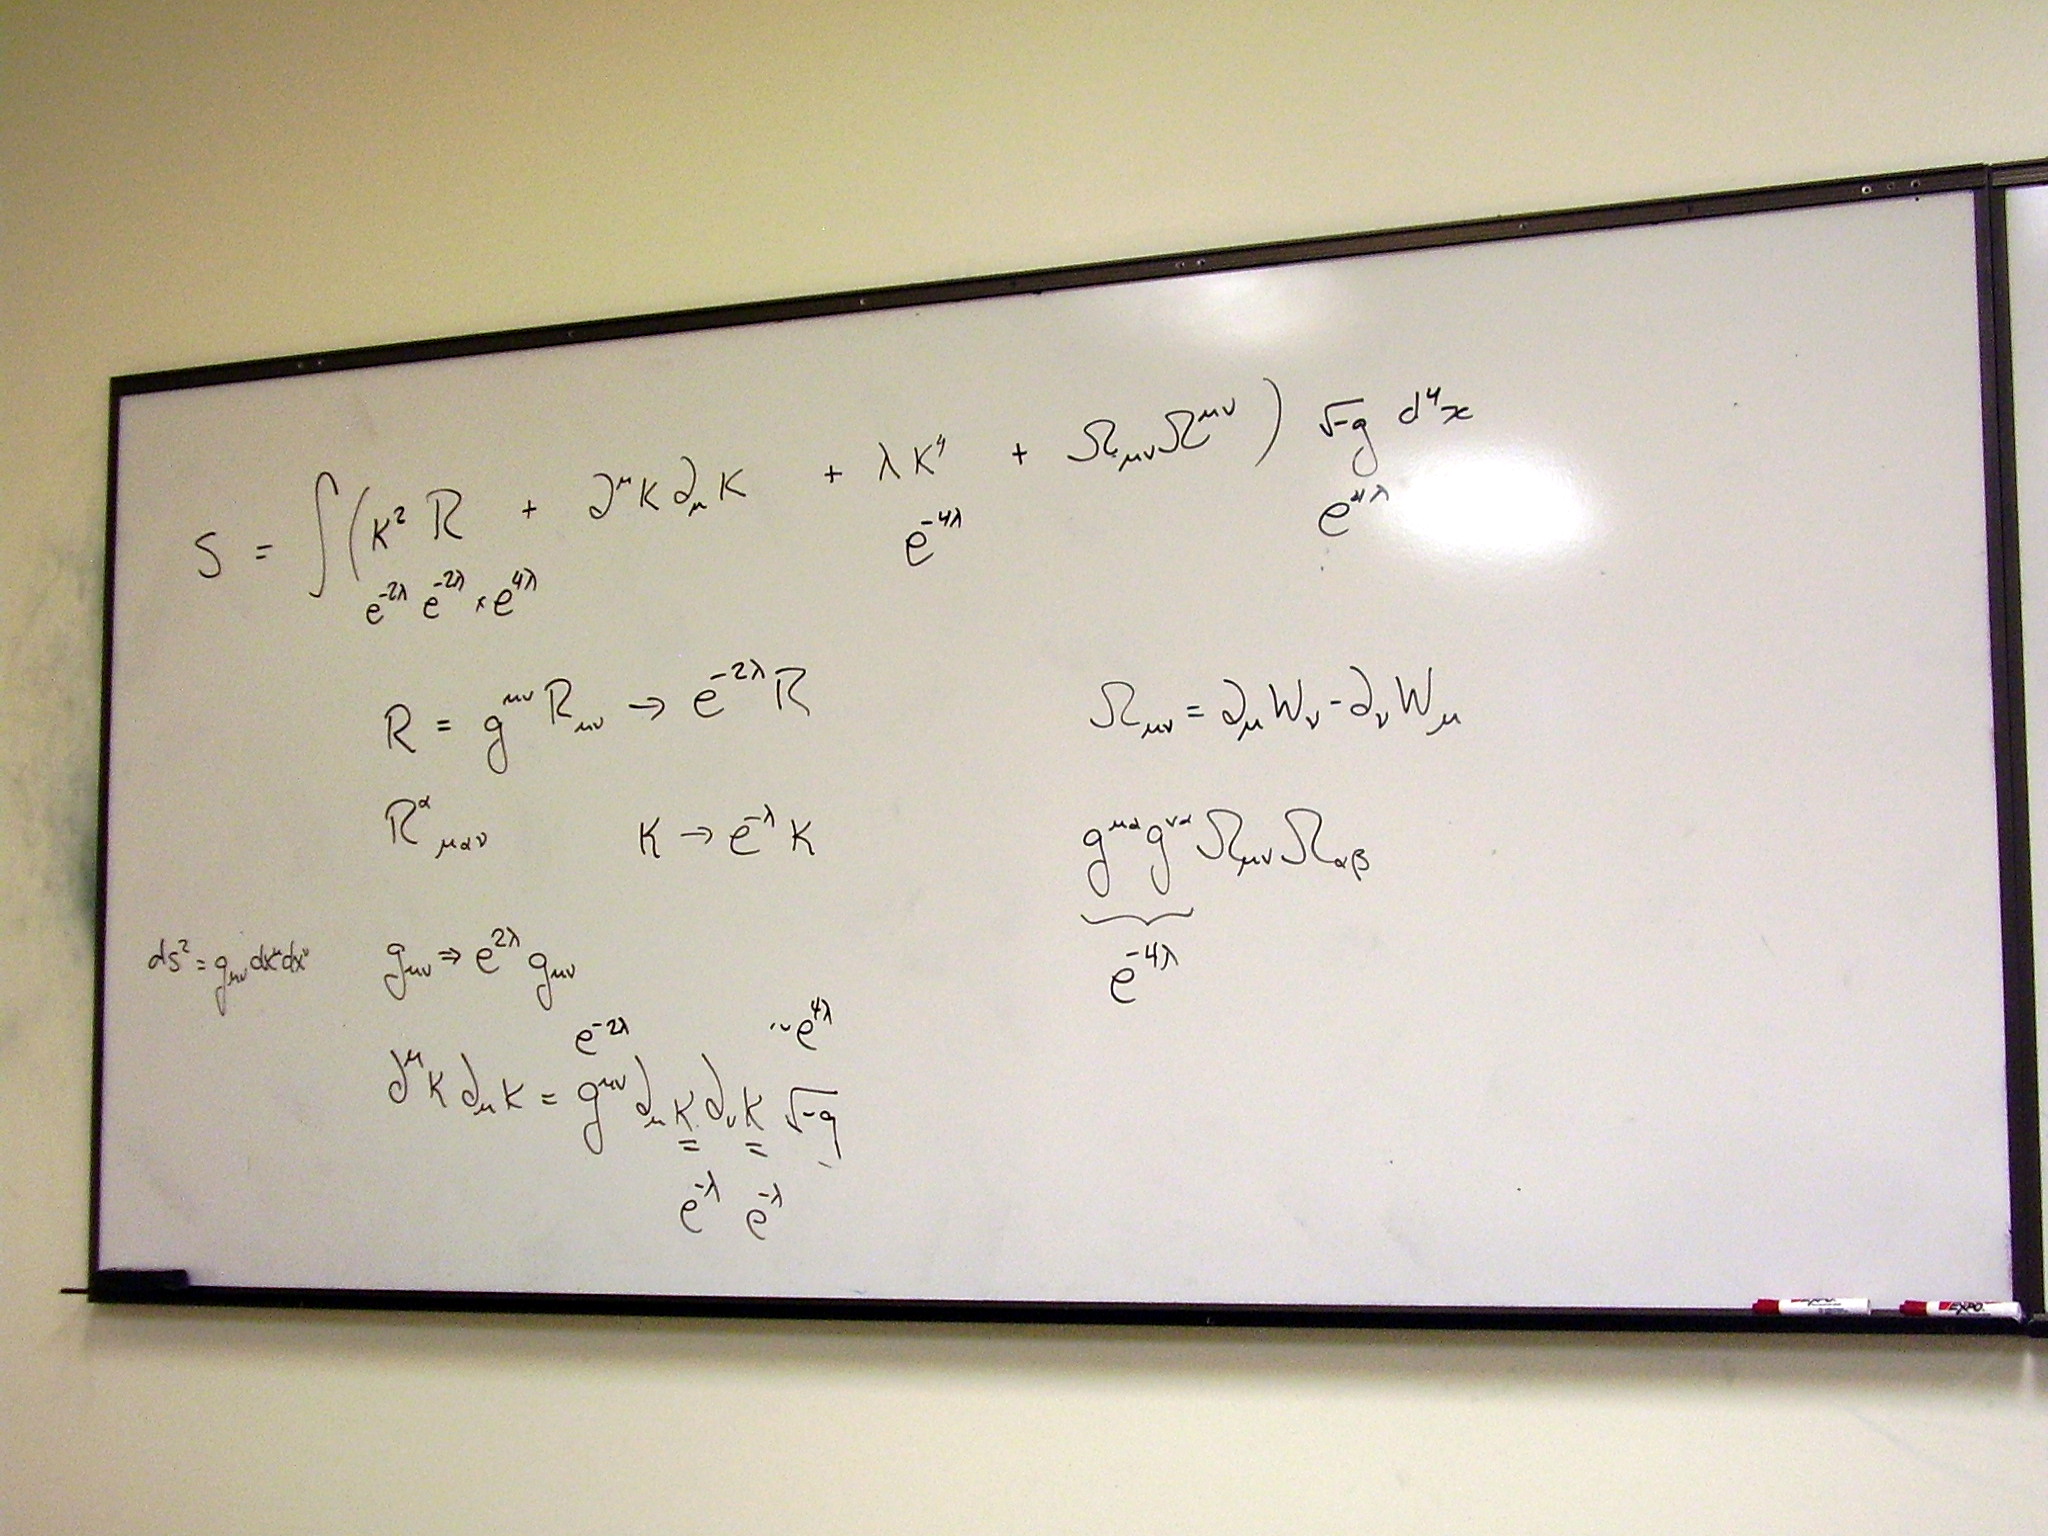 S = ∫(K² R + ∂^μ K ∂_μ K + λK⁴ + Ω_μν Ω^μν) √-g d⁴x
e^-2λ e^-2λ × e^4λ e^-4λ e^4λ
R = g^μν R_μν → e^-2λ R
Ω_μν = ∂_μ W_ν - ∂_ν W_μ
R^α_μαν
K → e^-λ K
g^μα g^να Ω_μν Ω_αβ
e^-4λ
ds² = g_μν dx^μ dx^ν
g_μν ⇒ e^2λ g_μν
e^-2λ ~e^4λ
∂^μ K ∂_μ K = g^μν ∂_μ K ∂_ν K √-g
e^-λ e^-λ
EXPO